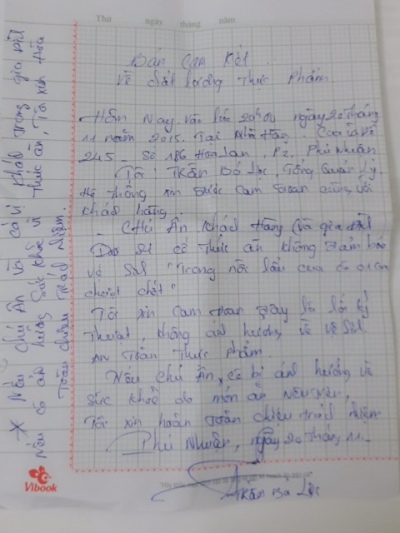 Thứ ngày tháng năm
Bản Cam Kết
Về Chất lượng Thực Phẩm.
Hôm Nay vào lúc 20h00 ngày 20 tháng
11 năm 2015. Tại Nhà Hàng
245 - Số Hoa Lan, P2, Phú Nhuận
Tôi: Trần Bá Lộc, Tổng Quản Lý
Hệ Thống xin được Cam đoan cùng với
khách hàng.
- Chú Ân khách Hàng (và gia đình)
Do sử thức ăn không đảm bảo
về "Trong nồi lẩu của có con
chuột chết"
Tôi xin Cam đoan đây là lỗi kỹ
Thuật không ảnh hưởng về vệ sinh
An toàn Thực phẩm.
Nếu Chú Ân, có bị ảnh hưởng về
Sức khoẻ do món ăn nêu trên,
Tôi xin hoàn toàn chịu trách nhiệm
Phú Nhuận, ngày 20 tháng 11
Trần Bá Lộc
* Nếu Chú Ân và có vị khác trong gia đình
Nếu có ảnh hưởng sức khoẻ vì thức ăn, Tôi xin
Toàn chịu Trách Nhiệm.
Vibook